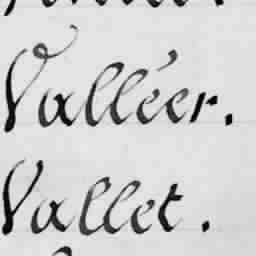 Valléer.
Vallet.